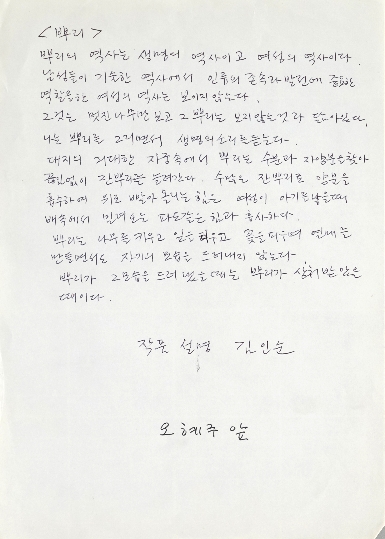 <뿌리>
뿌리의 역사는 생명의 역사이고 여성의 역사이다.
남성들이 기술한 역사에서 인류의 존속과 발전에 중요한
역할을 한 여성의 역사는 보이지 않는다.
그것은 멋진 나무만 보고 그 뿌리는 보지 않는 것과 닮아있다.
나는 뿌리를 그리면서 생명의 소리를 듣는다.
대지의 거대한 자궁속에서 뿌리는 수분과 자양분을 찾아
끊임없이 잔뿌리를 늘려간다. 수많은 잔뿌리로 양분을
흡수하여 위로 뿜아 올리는 힘은 여성이 아기를 낳을때
배속에서 밀려오는 파도같은 힘과 흡사하다.
뿌리는 나무를 키우고 잎을 틔우고 꽃을 피우며 열매를
만들면서도 자기의 모습을 드러내지 않는다.
뿌리가 그 모습을 드러냈을 때는 뿌리가 상처 받았을
때이다.
작품 설명 김인순
오혜주 앞